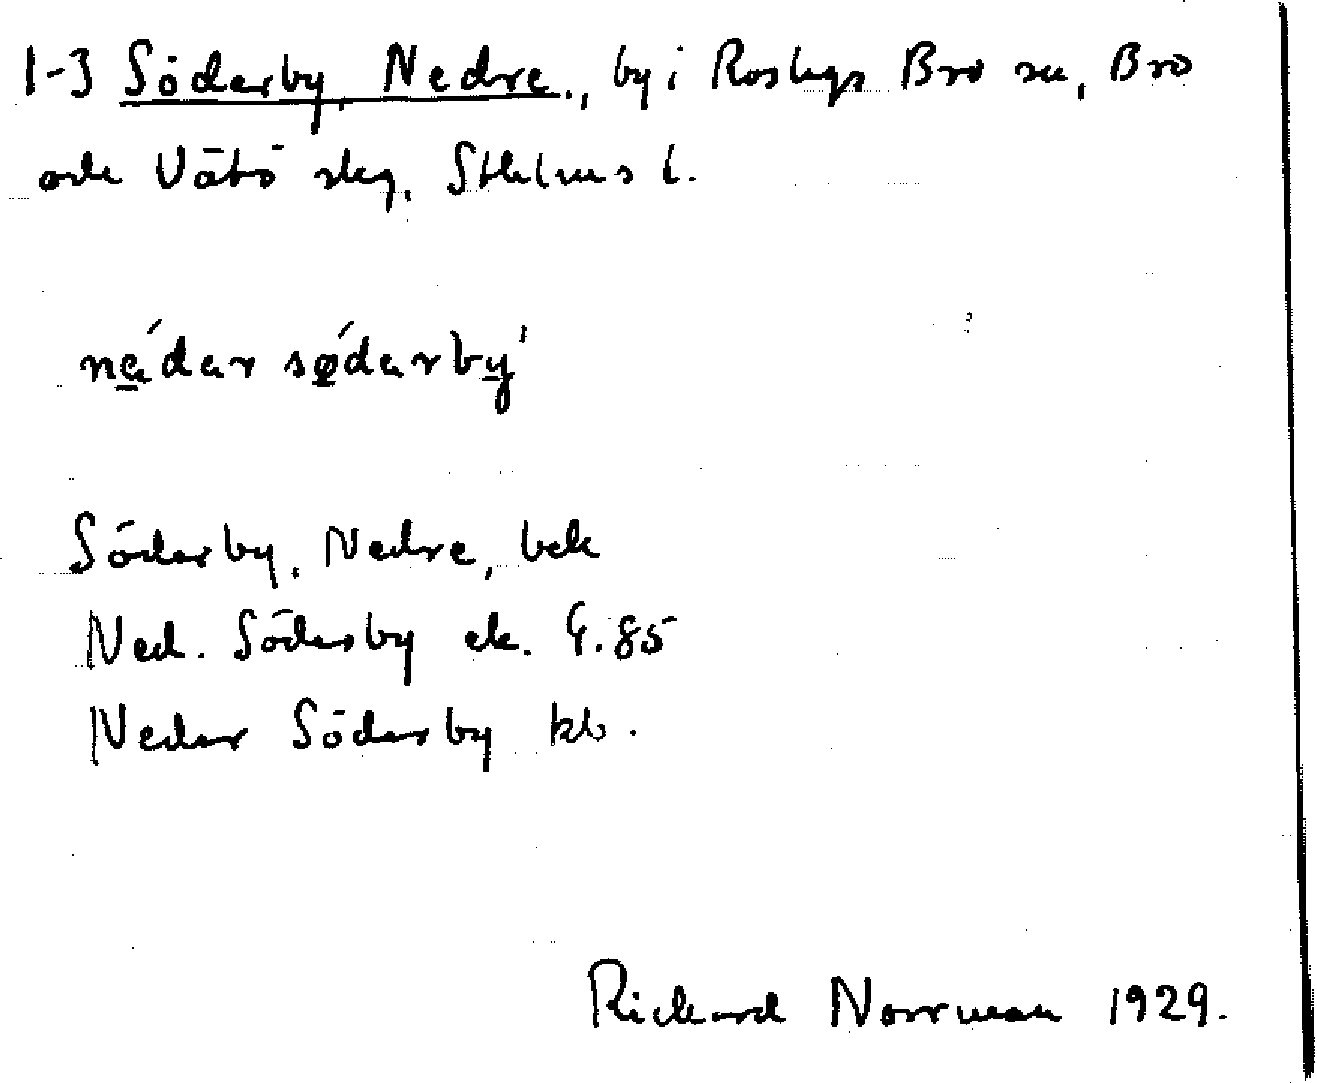 1-3 Söderby, Nedre., by i Roslags Bro sn, Bro
och Vätö skg, Sthlms l.
nédar sǿdarby'
Söderby, Nedre, bek
Ned. Söderby ek. G.85
Neder Söderby kb.
Rickard Norrman 1929.